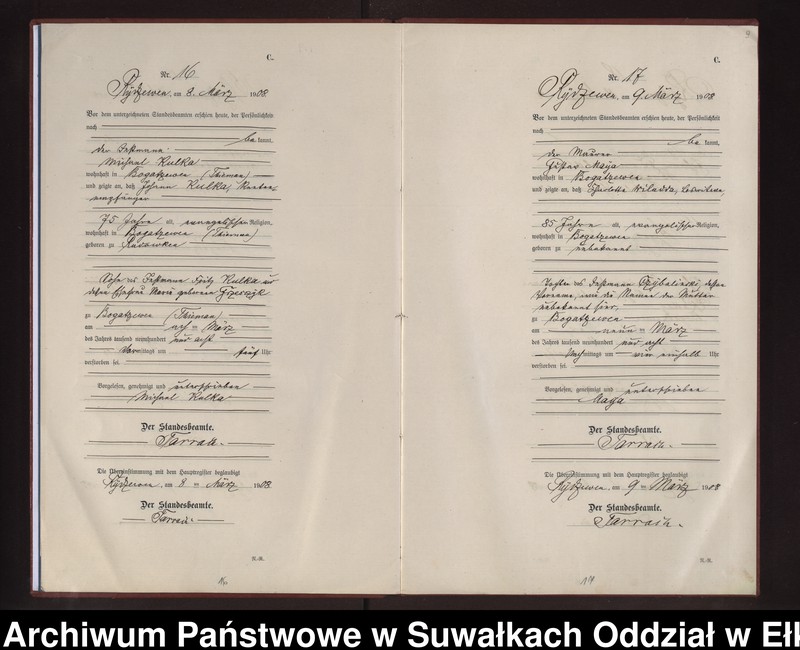 C.
Nr. 16
Rydzewen, am 8. März 1908
Vor dem unterzeichneten Standesbeamten erschien heute, der Persönlichkeit
nach
be kannt,
der Instmann
Michael Kulka
wohnhaft in Bogatzewen (Thisman)
und zeigte an, daß Johann Kulka, Renten
empfänger
75 Jahre alt, evangelischer Religion,
wohnhaft in Bogatzewen (Thisman)
geboren zu
Sohn des Instmann Fritz Kulka und
dessen Ehefrau Marie geborene
zu Bogatzewen (Thisman)
am acht ten März
des Jahres tausend neunhundert und acht
Vor mittags um fünf Uhr
verstorben sei.
Vorgelesen, genehmigt und unterschrieben
Michael Kulka
Der Standesbeamte.
Tarrach.
Die Übereinstimmung mit dem Hauptregister beglaubigt
Rydzewen, am 8 ten März 1908
Der Standesbeamte.
Tarrach.
9
C.
Nr. 17
Rydzewen, am 9. März 1908
Vor dem unterzeichneten Standesbeamten erschien heute, der Persönlichkeit
nach
be kannt,
der Maurer
Gustav Maya
wohnhaft in Bogatzewen
und zeigte an, daß Charlotte
85 Jahre alt, evangelischer Religion,
wohnhaft in Bogatzewen
geboren zu unbekannt
Tochter des Instmann Czybalinski, dessen
Vorname, und die Namen der Mutter
unbekannt sind
zu Bogatzewen
am neun ten März
des Jahres tausend neunhundert und acht
Nach mittags um ein einhalb Uhr
verstorben sei.
Vorgelesen, genehmigt und unterschrieben
Maya
Der Standesbeamte.
Tarrach.
Die Übereinstimmung mit dem Hauptregister beglaubigt
Rydzewen, am 9 ten März 1908
Der Standesbeamte.
Tarrach.
Archiwum Państwowe w Suwałkach Oddział w Ełk